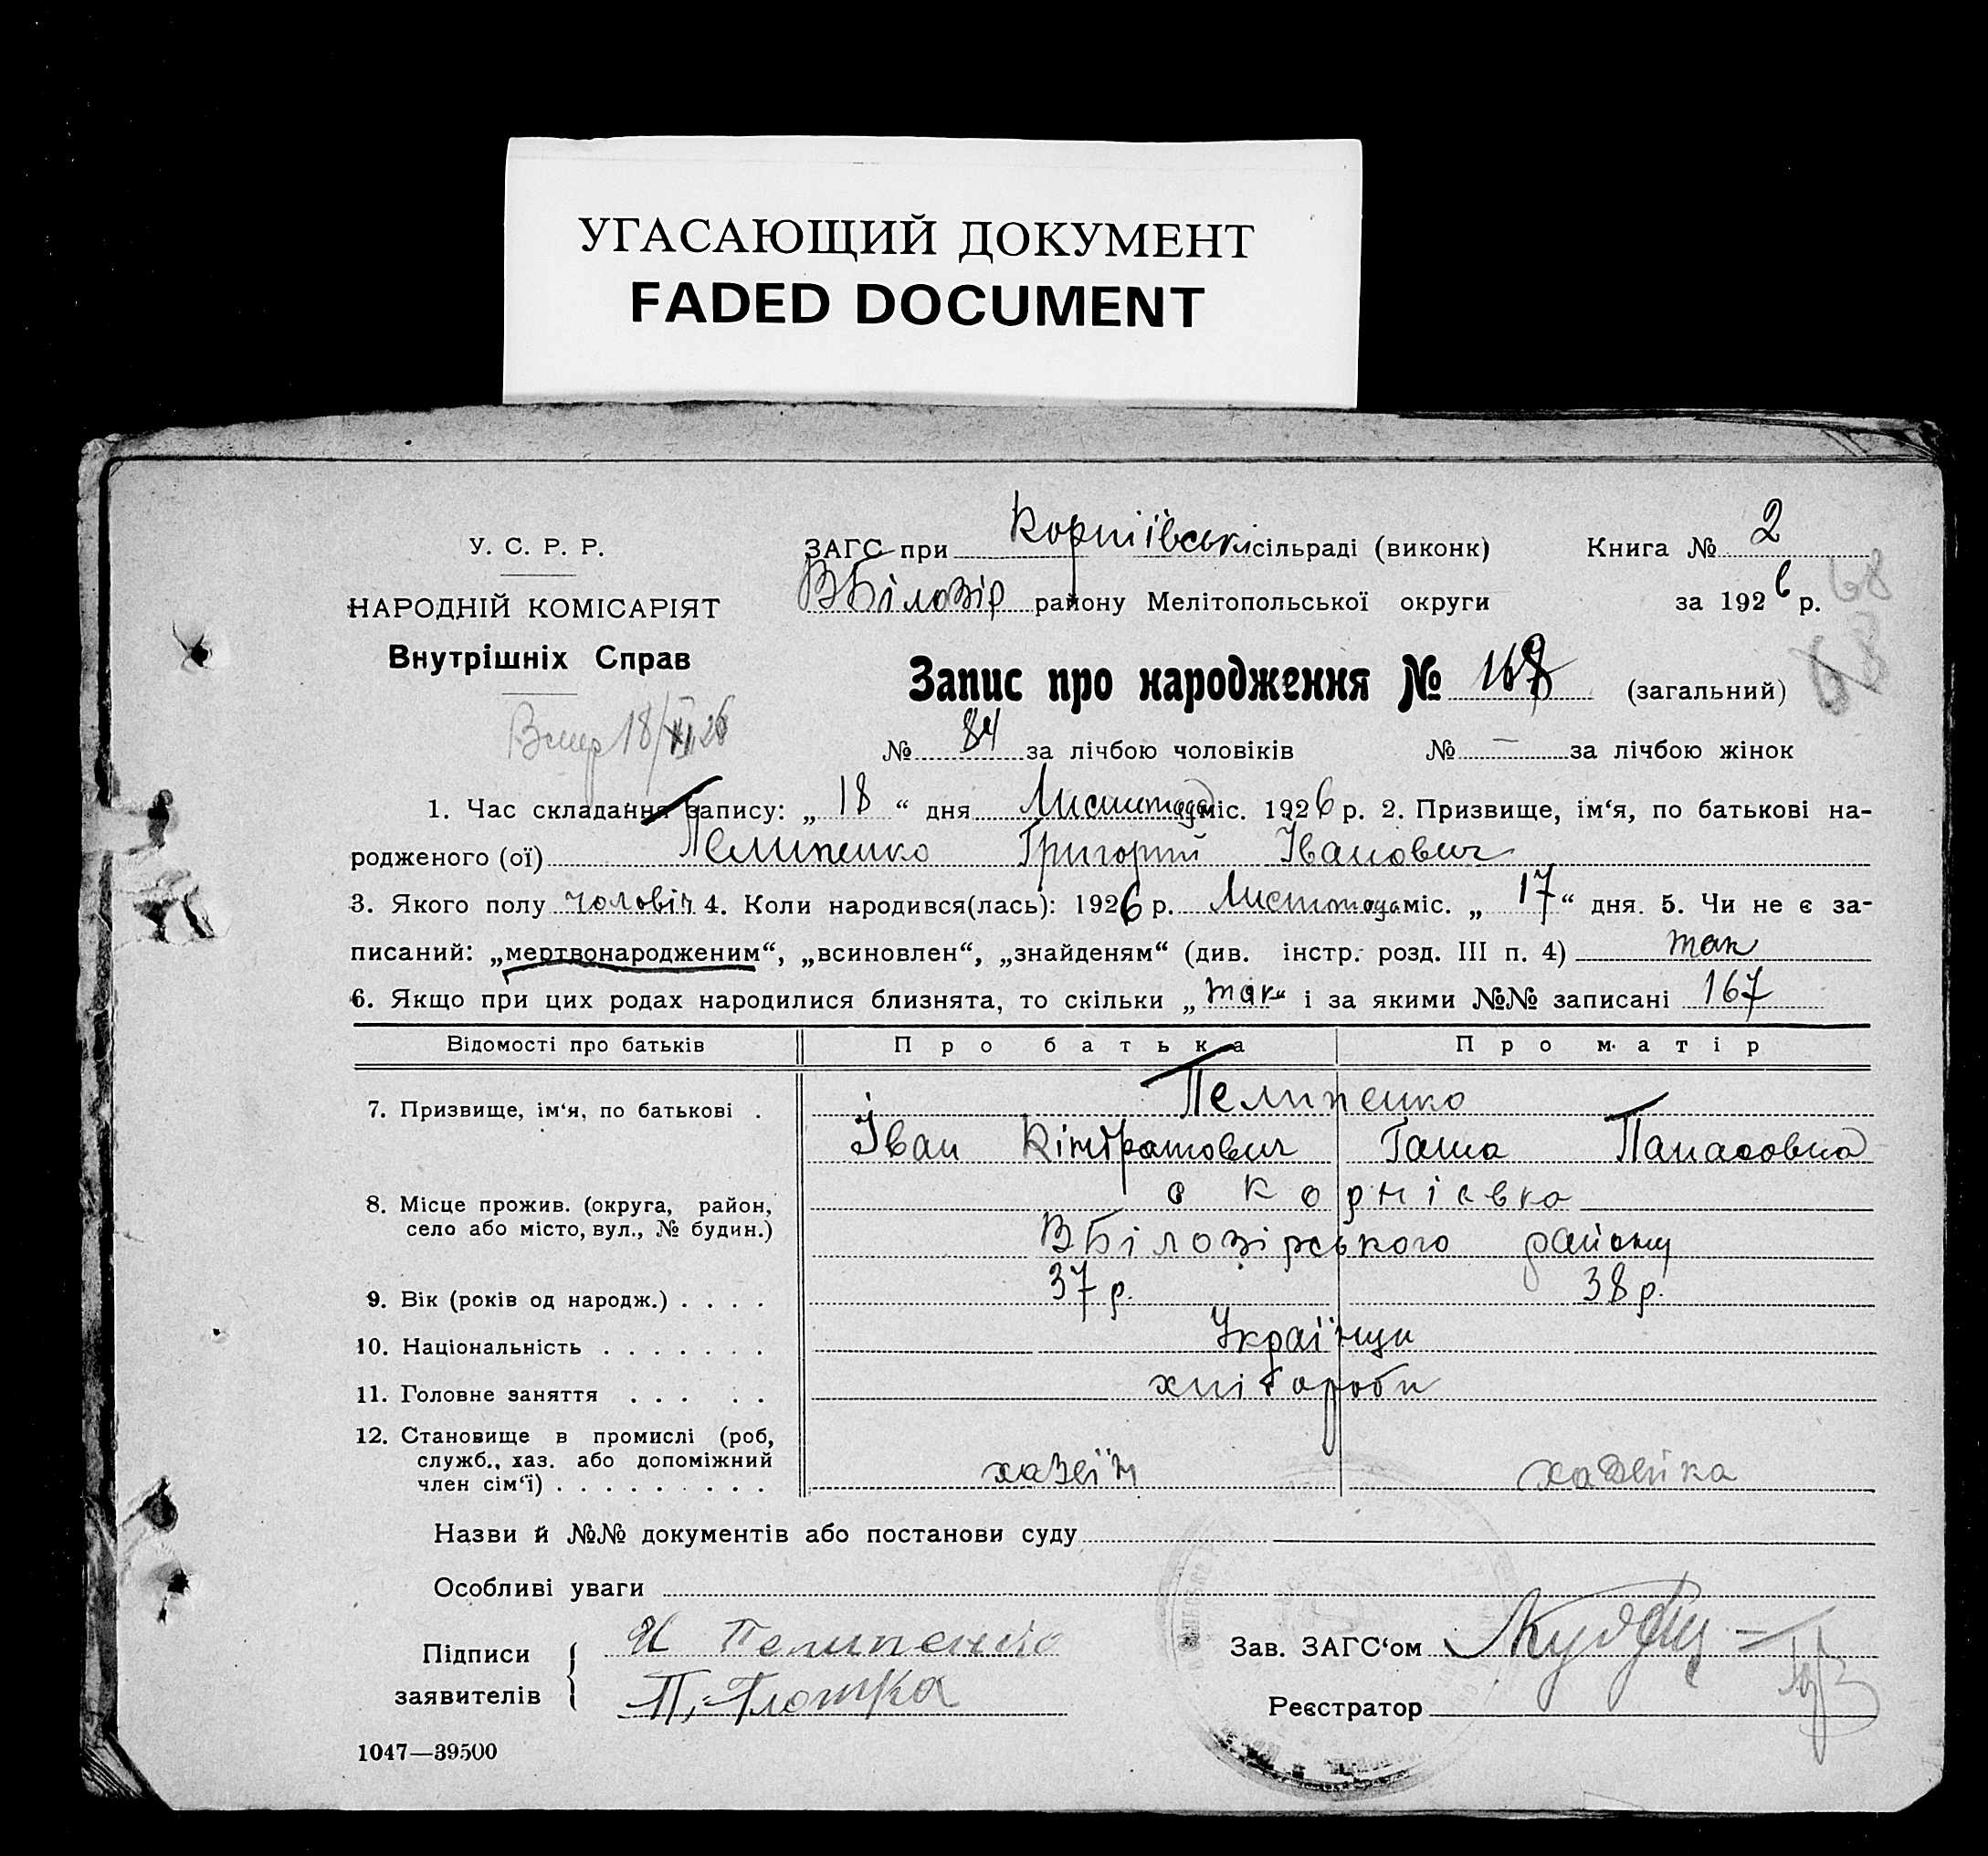 УГАСАЮЩИЙ ДОКУМЕНТ
FADED DOCUMENT
У. С. Р. Р.
НАРОДНІЙ КОМІСАРІЯТ
Внутрішніх Справ
Вмер 18/XI 26
ЗАГС при Корніївські сільраді (виконк)
ВБілозір району Мелітопольської округи
Книга № 2
за 1926 р.
68
Запис про народження № 167 (загальний)
№ 84 за лічбою чоловіків № — за лічбою жінок
1. Час складання запису: „ 18 “ дня Листопада міс. 1926 р. 2. Призвище, ім‘я, по батькові на-
родженого (ої) Пелипенко Григорій Іванович
3. Якого полу чоловіч 4. Коли народився(лась): 1926 р. Листопада міс. „ 17 “ дня. 5. Чи не є за-
писаний: „мертвонародженим“, „всиновлен“, „знайденям“ (див. інстр. розд. III п. 4) так
6. Якщо при цих родах народилися близнята, то скільки „ так “ і за якими №№ записані 167
Відомості про батьків Про батька Про матір
7. Призвище, ім‘я, по батькові . Пелипенко
Іван Кіндратович Ганна Панасовна
8. Місце прожив. (округа, район, с Корніевка
село або місто, вул., № будин.) ВБілозірського району
9. Вік (років од народж.) . . . . 37 р. 38 р.
10. Національність . . . . . . . Українци
11. Головне заняття . . . . . хліб ороби
12. Становище в промислі (роб,
служб., хаз. або допоміжний
член сім‘ї) . . . . . . . . . хазяїн хазяйка
Назви й №№ документів або постанови суду
Особливі уваги
Підписи заявителів
И Пелипенко
Зав. ЗАГС‘ом
Реєстратор
1047—39500